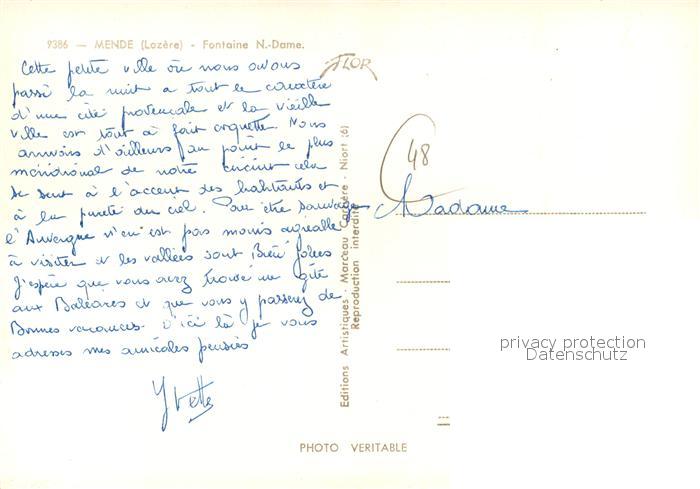 9386 - MENDE (Lozère) - Fontaine N.-Dame.
Cette petite ville où nous avons
passé la nuit a tout le caractère
d'une cité provençale et la vieille
ville est tout à fait coquette. Nous
arrivons d'ailleurs au point le plus
méridional de notre circuit cela
se sent à l'accent des habitants et
à la pureté du ciel. Pour être sauvage
l'Auvergne n'en est pas moins agréable
à visiter et les vallées sont bien jolies
J'espère que vous avez trouvé un gîte
aux Baléares et que vous y passerez de
Bonnes vacances. D'ici là je vous
adresse mes amicales pensées
Yvette
FLOR
Editions Artistiques - Marceau Carrière - Niort (6)
Reproduction interdite
48
Madame
privacy protection
Datenschutz
PHOTO VERITABLE